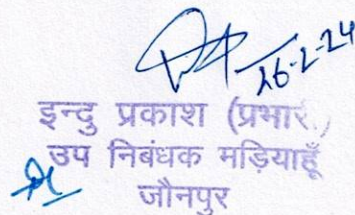 26-2-24
इन्दु प्रकाश (प्रभारी)
उप निबंधक मड़ियाहूँ
जौनपुर